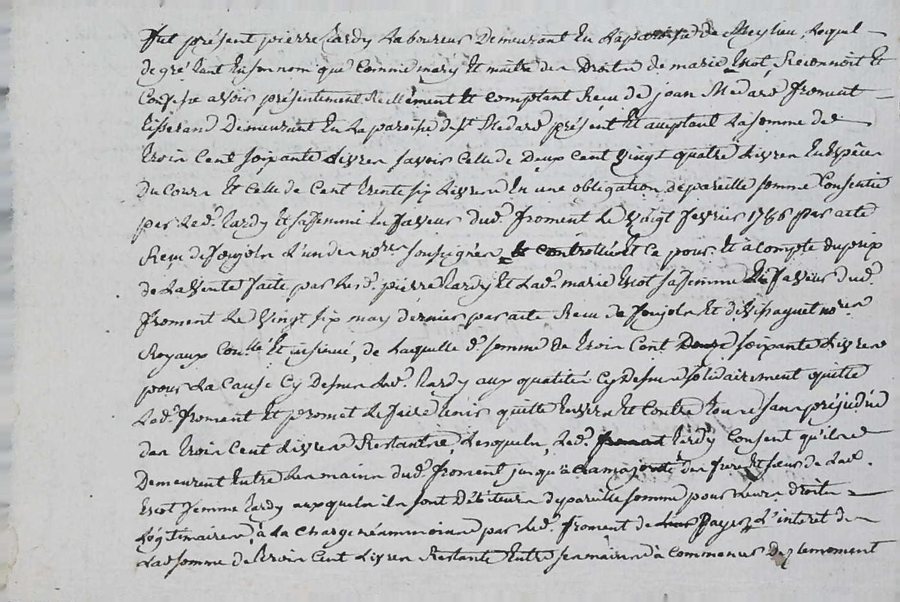 Fut présent pierre Tardy Laboureur Demeurant En La paroisse de Meylieu Lequel
de gré tant En son nom que Comme mary Et maitre des Droits de marie Escot, Reconnoit Et
Confesse avoir présentement Réellement Et comptant Recu de jean Medard froment
tisserand Demeurant En La paroisse de St Medard présent Et acceptant La somme de
trois Cent soixante Livres savoir Celle de Deux Cent Vingt quatre Livres En Espèces
Du Cours Et Celle de Cent trente six Livres En une obligation de pareille somme Consentie
par Led. Tardy Et sa femme En faveur dud. froment Le Vingt fevrier 1786 par acte
Recu de L'un des nores soussignés Et Ce pour Et à Compte du prix
de La Vente faite par Led. pierre Tardy Et Lad. marie Escot sa femme En faveur dud.
froment Le Vingt six may dernier par acte Recu de Et de nores
Royaux Conllé Et insinué, de Laquelle d. somme de trois Cent soixante Livres
pour La Cause Cy Dessus Led. Tardy aux qualités Cy dessus solidairement quitte
Led. froment Et promet Le faire tenir quitte Envers Et Contre tous sans préjudice
des trois Cent Livres Restantes, Lesquels, Led. Tardy Consent qu'ils
Demeurent Entre Les mains dud. froment jusqu'à La majorité des freres Et sœurs de Lad.
Escot femme Tardy auxquels ils sont Débiteurs de pareille somme pour Leurs droits
Légitimaires, à La Charge néammoins par Led. froment de Payer L'interet de
Lad. somme de trois Cent Livres Restante Entre ses mains à Commencer Dez le moment